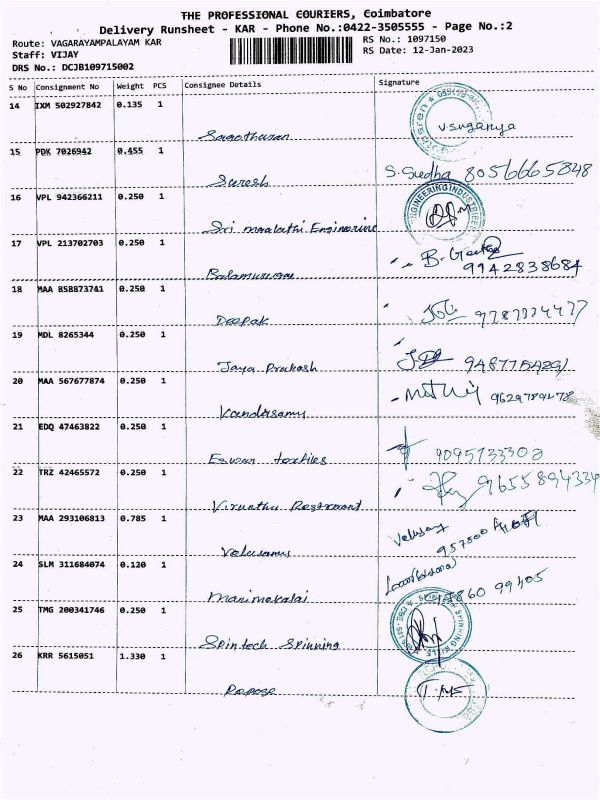 THE PROFESSIONAL COURIERS, Coimbatore
Delivery Runsheet - KAR - Phone No.:0422-3505555 - Page No.:2
Route: VAGARAYAMPALAYAM KAR
RS No.: 1097150
Staff: VIJAY
RS Date: 12-Jan-2023
DRS No.: DCJB109715002
S No Consignment No Weight PCS Consignee Details Signature
14 IXM 502927842 0.135 1
vsuganya
15 PDK 7026942 0.455 1
Suresh
S. Sudha 8056665848
16 VPL 942366211 0.250 1
Sri maalathi Engineering
ENGINEERING INDUSTRIES
17 VPL 213702703 0.250 1
Balamurugan
B. Geetha
9942838684
18 MAA 858873741 0.250 1
Deepak
19 MDL 8265344 0.250 1
Jaya Prakash
20 MAA 567677874 0.250 1
Kandasamy
21 EDQ 47463822 0.250 1
Eswar textiles
22 TRZ 42465572 0.250 1
Virunthu Restaurant
9655894334
23 MAA 293106813 0.785 1
Velusamy
Velusamy
24 SLM 311684074 0.120 1
Manimekalai
25 TMG 200341746 0.250 1
Spintech Spinning
26 KRR 5615051 1.330 1